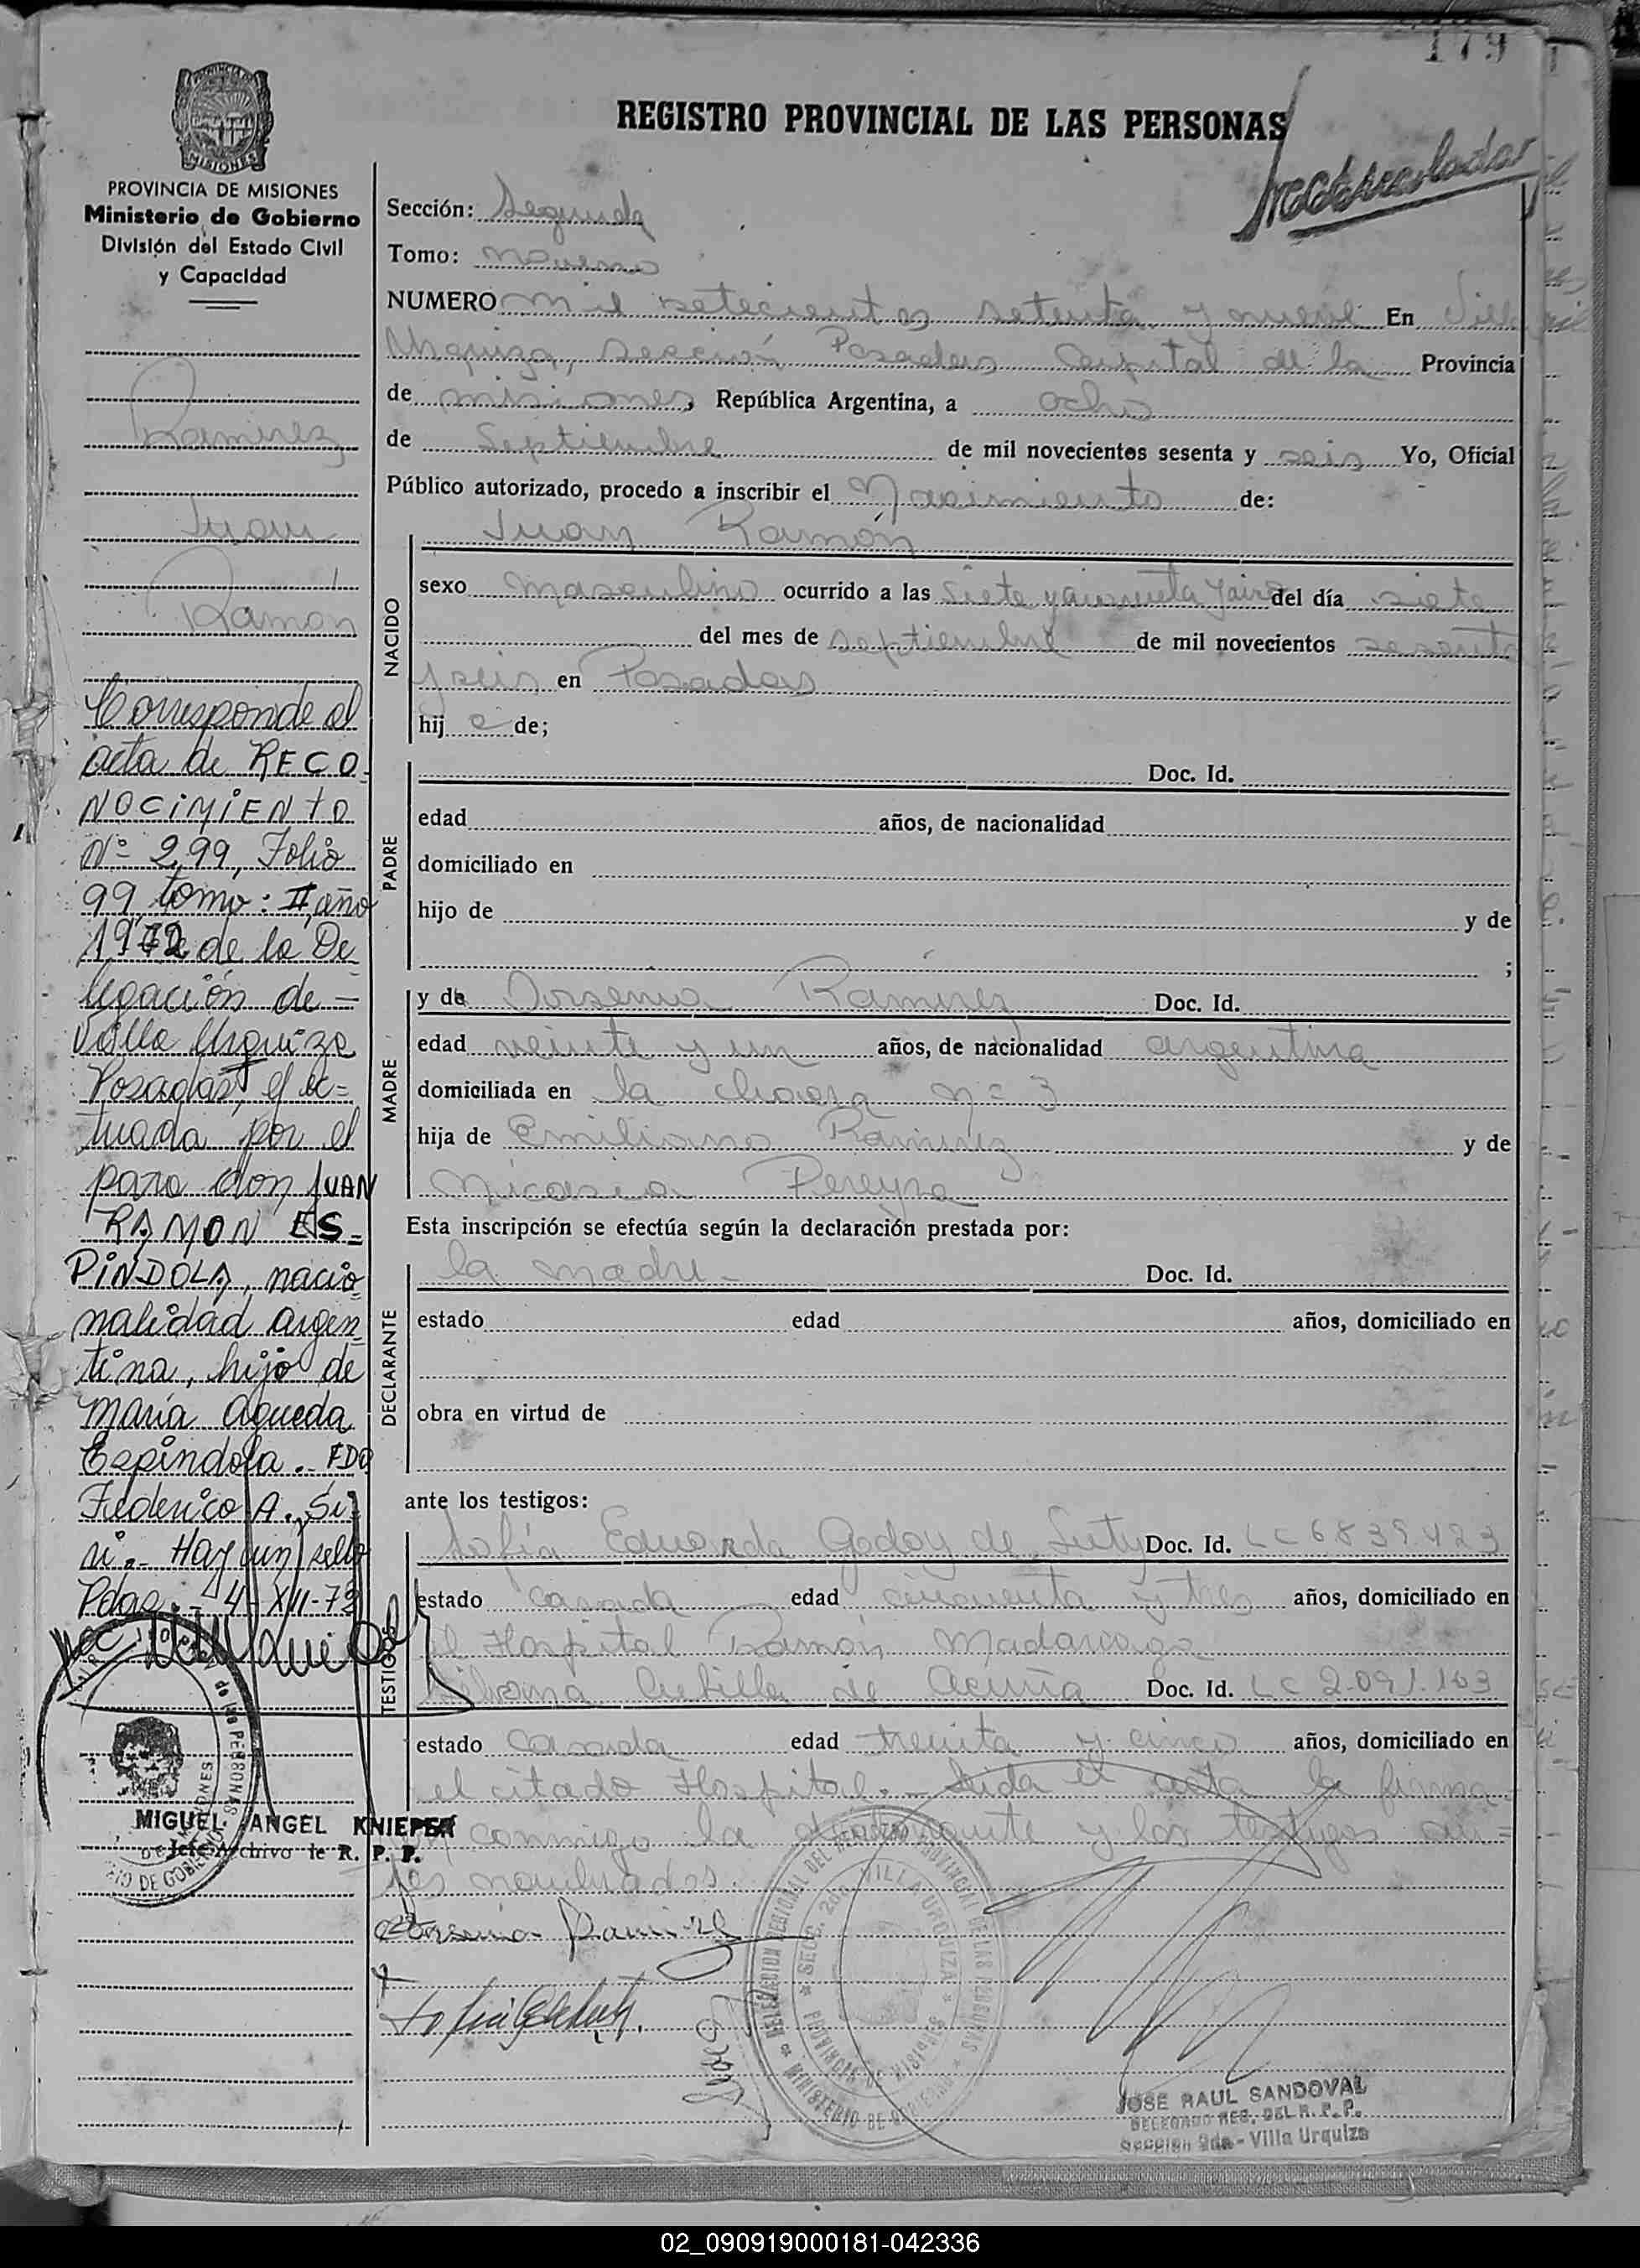 179
REGISTRO PROVINCIAL DE LAS PERSONAS
MISIONES
PROVINCIA DE MISIONES
Ministerio de Gobierno
División del Estado Civil
y Capacidad
Ramirez
Juan
Ramón
Corresponde al
acta de RECO
NOCIMIENTO
Nº 299, Folio
99 tomo: II, año
1972 de la De
legación de -
Villa Urquiza
Posadas, efec=
tuada por el
para don JUAN
RAMON ES-
PINDOLA, nacio
nalidad argen
tina, hijo de
maría Agueda
Espíndola. FDO
Federico A. Si
ni.- Hay un sello
Pdas. - 4-XII-73
MIGUEL ANGEL KNIEPER
Jefe Archivo de R. P. P.
Sección: Segunda
Tomo: noveno
NUMERO mil setecientos setenta y nueve En Villa
Urquiza, sección Posadas Capital de la Provincia
de misiones, República Argentina, a ocho
de Septiembre de mil novecientos sesenta y seis Yo, Oficial
Público autorizado, procedo a inscribir el Nacimiento de:
Juan Ramón
NACIDO
sexo masculino ocurrido a las siete y cincuenta y cinco del día siete
del mes de septiembre de mil novecientos sesenta
y seis en Posadas
hij o de;
PADRE
Doc. Id.
edad años, de nacionalidad
domiciliado en
hijo de y de
;
MADRE
y de Arsenia Ramirez Doc. Id.
edad veinte y un años, de nacionalidad argentina
domiciliada en la chacra nº 3
hija de Emiliano Ramirez y de
Nicasia Pereyra
Esta inscripción se efectúa según la declaración prestada por:
DECLARANTE
la madre - Doc. Id.
estado edad años, domiciliado en
obra en virtud de
ante los testigos:
TESTIGOS
Sofía Eduarda Godoy de Suty Doc. Id. LC 6839423
estado casada edad cincuenta y tres años, domiciliado en
el Hospital Ramón Madariaga
de Acuña Doc. Id. LC 2.091.103
estado casada edad treinta y cinco años, domiciliado en
el citado Hospital. Leida el acta la firma
conmigo la declarante y los testigos an=
tes nombrados.
Arsenia Ramirez
DELEGACION REGIONAL DEL REGISTRO PROVINCIAL DE LAS PERSONAS
SECC. 2da. VILLA URQUIZA
PROVINCIA DE MISIONES
MINISTERIO DE GOBIERNO
JOSE RAUL SANDOVAL
DELEGADO REG. DEL R. P. P.
Sección 2da - Villa Urquiza
02_090919000181-042336